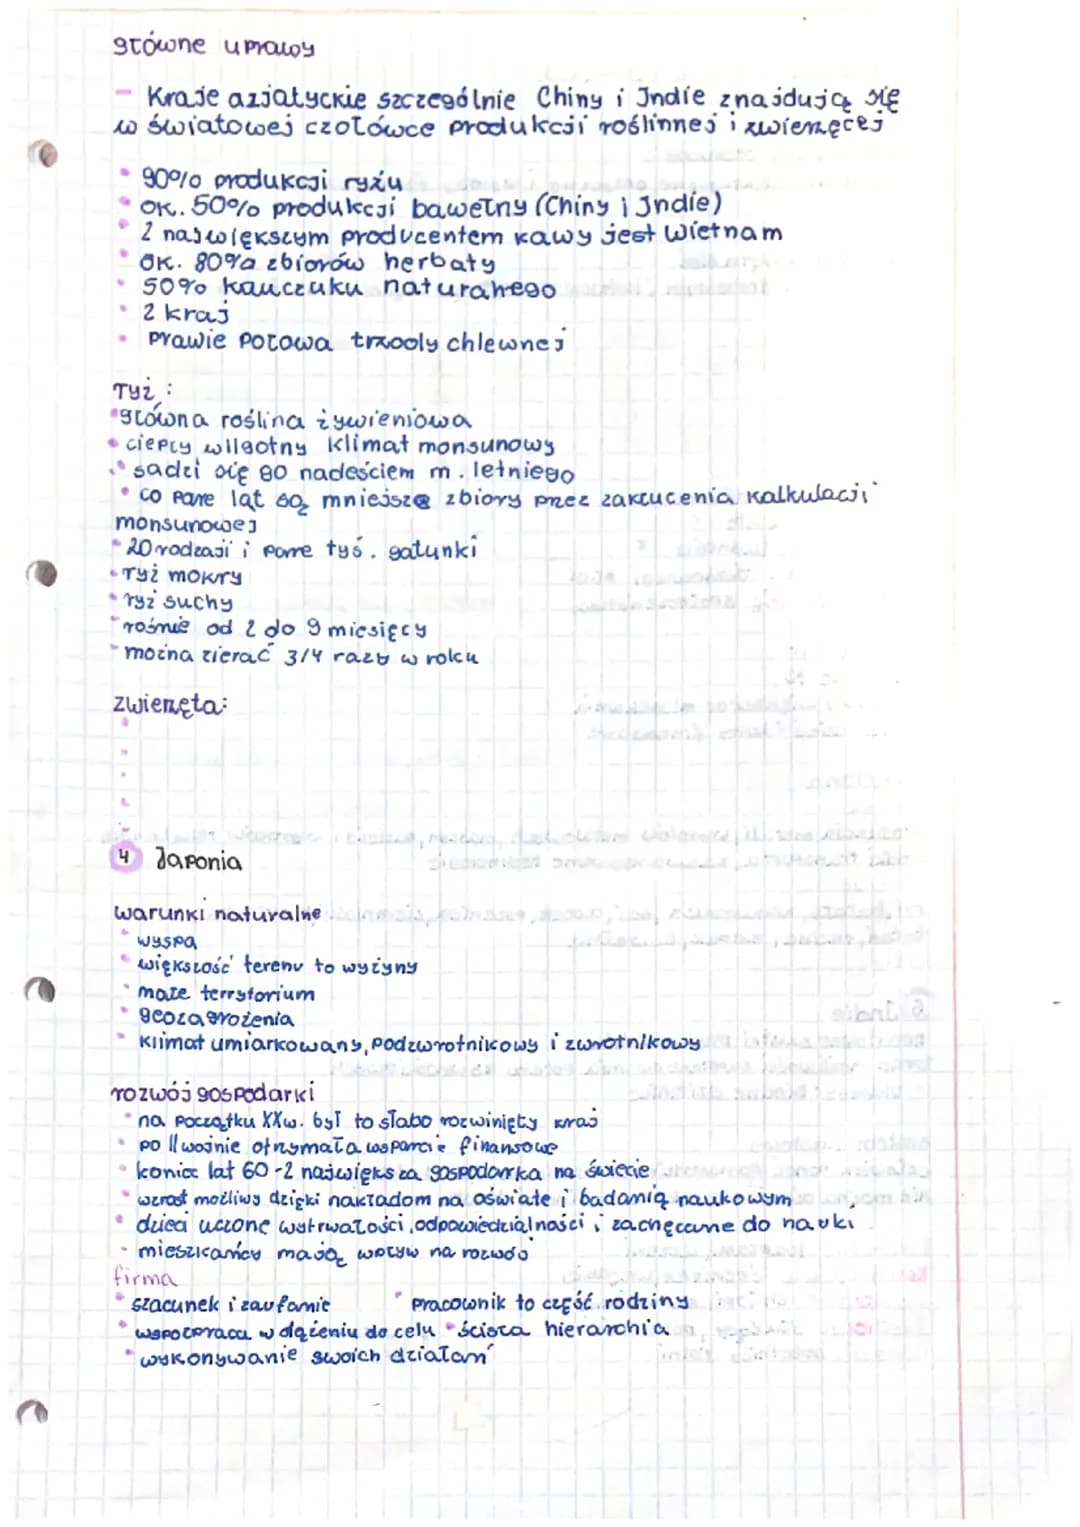 główne uprawy
- Kraje azjatyckie szczególnie Chiny i Indie znajdują się
w światowej czołówce produkcji roślinnej i zwierzęcej
• 90% produkcji ryżu
• ok. 50% produkcji bawełny (Chiny i Indie)
• 2 największym producentem kawy jest wietnam
• ok. 80% zbiorów herbaty
• 50% kauczuku naturalnego
• 2 kraj
• prawie połowa trzody chlewnej
ryż :
• główna roślina żywieniowa
• ciepły wilgotny klimat monsunowy
• sadzi się go nadejściem m. letniego
• co pare lat są mniejsze zbiory przez zakłucenia kalkulacji
monsunowej
• 20 rodzaji i pare tyś. gatunki
• ryż mokry
• ryż suchy
• rośnie od 2 do 9 miesięcy
• można zierać 3/4 razy w roku
zwierzęta:
4 Japonia
warunki naturalne
• wyspa
• większość terenu to wyżyny
• małe terrytorium
• geozagrożenia
• klimat umiarkowany, podzwrotnikowy i zwrotnikowy
rozwój gospodarki
• na początku XXw. był to słabo rozwinięty kraj
• po II wojnie otrzymała wsparcie finansowe
• koniec lat 60 - 2 największa gospodarka na świecie
• wzrost możliwy dzięki nakładom na oświate i badanią naukowym
• dzieci uczone wytrwałości, odpowiedzialności i zachęcane do nauki
• mieszkańcy mają wpływ na rozwój
firma
• szacunek i zaufanie • pracownik to część rodziny
• współpraca w dążeniu do celu • ścisła hierarchia
• wykonywanie swoich działań